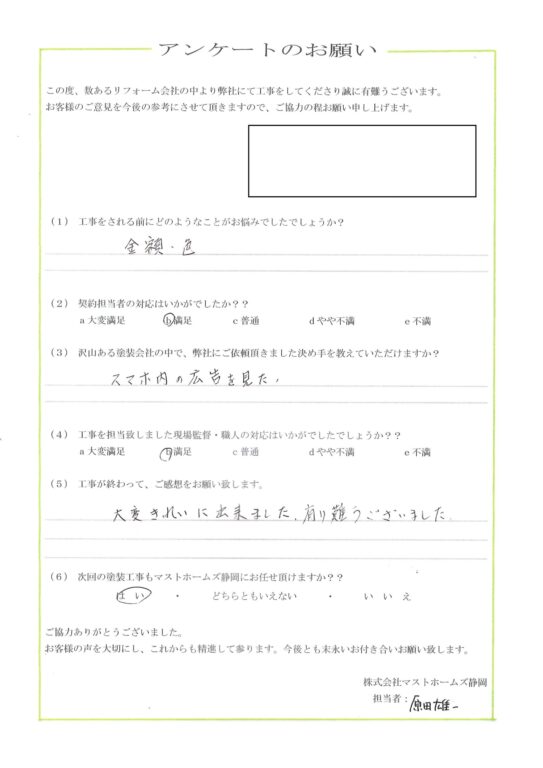 アンケートのお願い
この度、数あるリフォーム会社の中より弊社にて工事をしてくださり誠に有難うございます。
お客様のご意見を今後の参考にさせて頂きますので、ご協力の程お願い申し上げます。
（1） 工事をされる前にどのようなことがお悩みでしたでしょうか？
金額・色
（2） 契約担当者の対応はいかがでしたか？？
a 大変満足 b 満足 c 普通 d やや不満 e 不満
（3） 沢山ある塗装会社の中で、弊社にご依頼頂きました決め手を教えていただけますか？
スマホ内の広告を見た、
（4） 工事を担当致しました現場監督・職人の対応はいかがでしたでしょうか？？
a 大変満足 b 満足 c 普通 d やや不満 e 不満
（5） 工事が終わって、ご感想をお願い致します。
大変きれいに出来ました、有り難うございました。
（6） 次回の塗装工事もマストホームズ静岡にお任せ頂けますか？？
はい ・ どちらともいえない ・ いいえ
ご協力ありがとうございました。
お客様の声を大切にし、これからも精進して参ります。今後とも末永いお付き合いお願い致します。
株式会社マストホームズ静岡
担当者：原田雄一